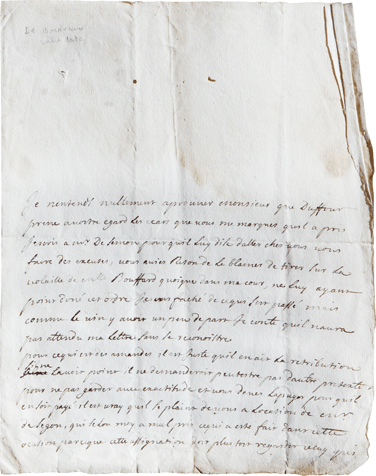 Je n'entends nullement aprouver monsieur que Duffour
prene a votre egard les ears que vous me marqués quil a pris
jecris a mr De pour quil luy dise daller chez vous vous
faire des excuses, vous avies raison de le blamer de tirer sur la
volaille de Bouffard quoique dans ma cour, ne luy ayant
point doné cet ordre Je suis faché de ce qui sest passé mais
comme le vin y avoit un peu de part Je conte quil naura
pas attendu ma lettre sans le reconoistre
pour ce qui est des amandes il est juste quil en ait la retribution
lavoir point il ne demanderoit peutestre pas dautre pretexte
pour ne pas garder avec exactitude et vous deves la payer pour quil
en soit payé il est vray quil se plaint de vous a locasion de
de segon, qui le lon my a mal pris ce qui a esté fait dans cette
ocasion parceque cette assignation doit plustost regarder celuy qui